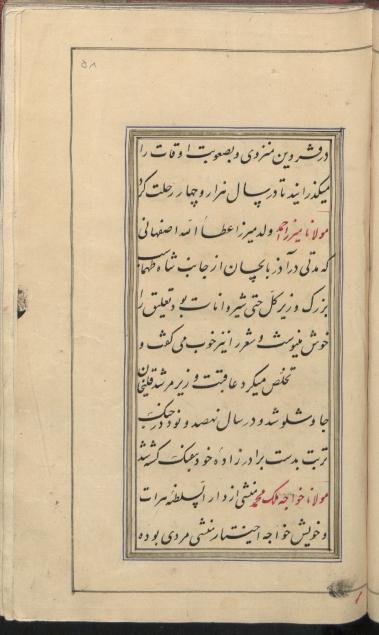 ۵۸
در قزوین منزوی و بصعوبت اوقات را
میگذرانید تا در سال هزار و چهار رحلت کرد
مولانا میرزا احمد ولد میرزا عطاء الله اصفهانی
که مدتی در آذربایجان از جانب شاه طهماسب
بزرگ وزیر کل حتی شیروانات بود تعلیق را
خوش مینوشت و شعر را نیز خوب می گفت و
تخلص میکرد عاقبت وزیر مرشد قلیخان
چاوشلو شد و در سال نهصد و نود در جنگ
تربت بدست برادرزاده خود بیک کشته شد
مولانا خواجه ملک محمد منشی از دار السلطنه هرات
و خویش خواجه اختیار منشی مردی بوده